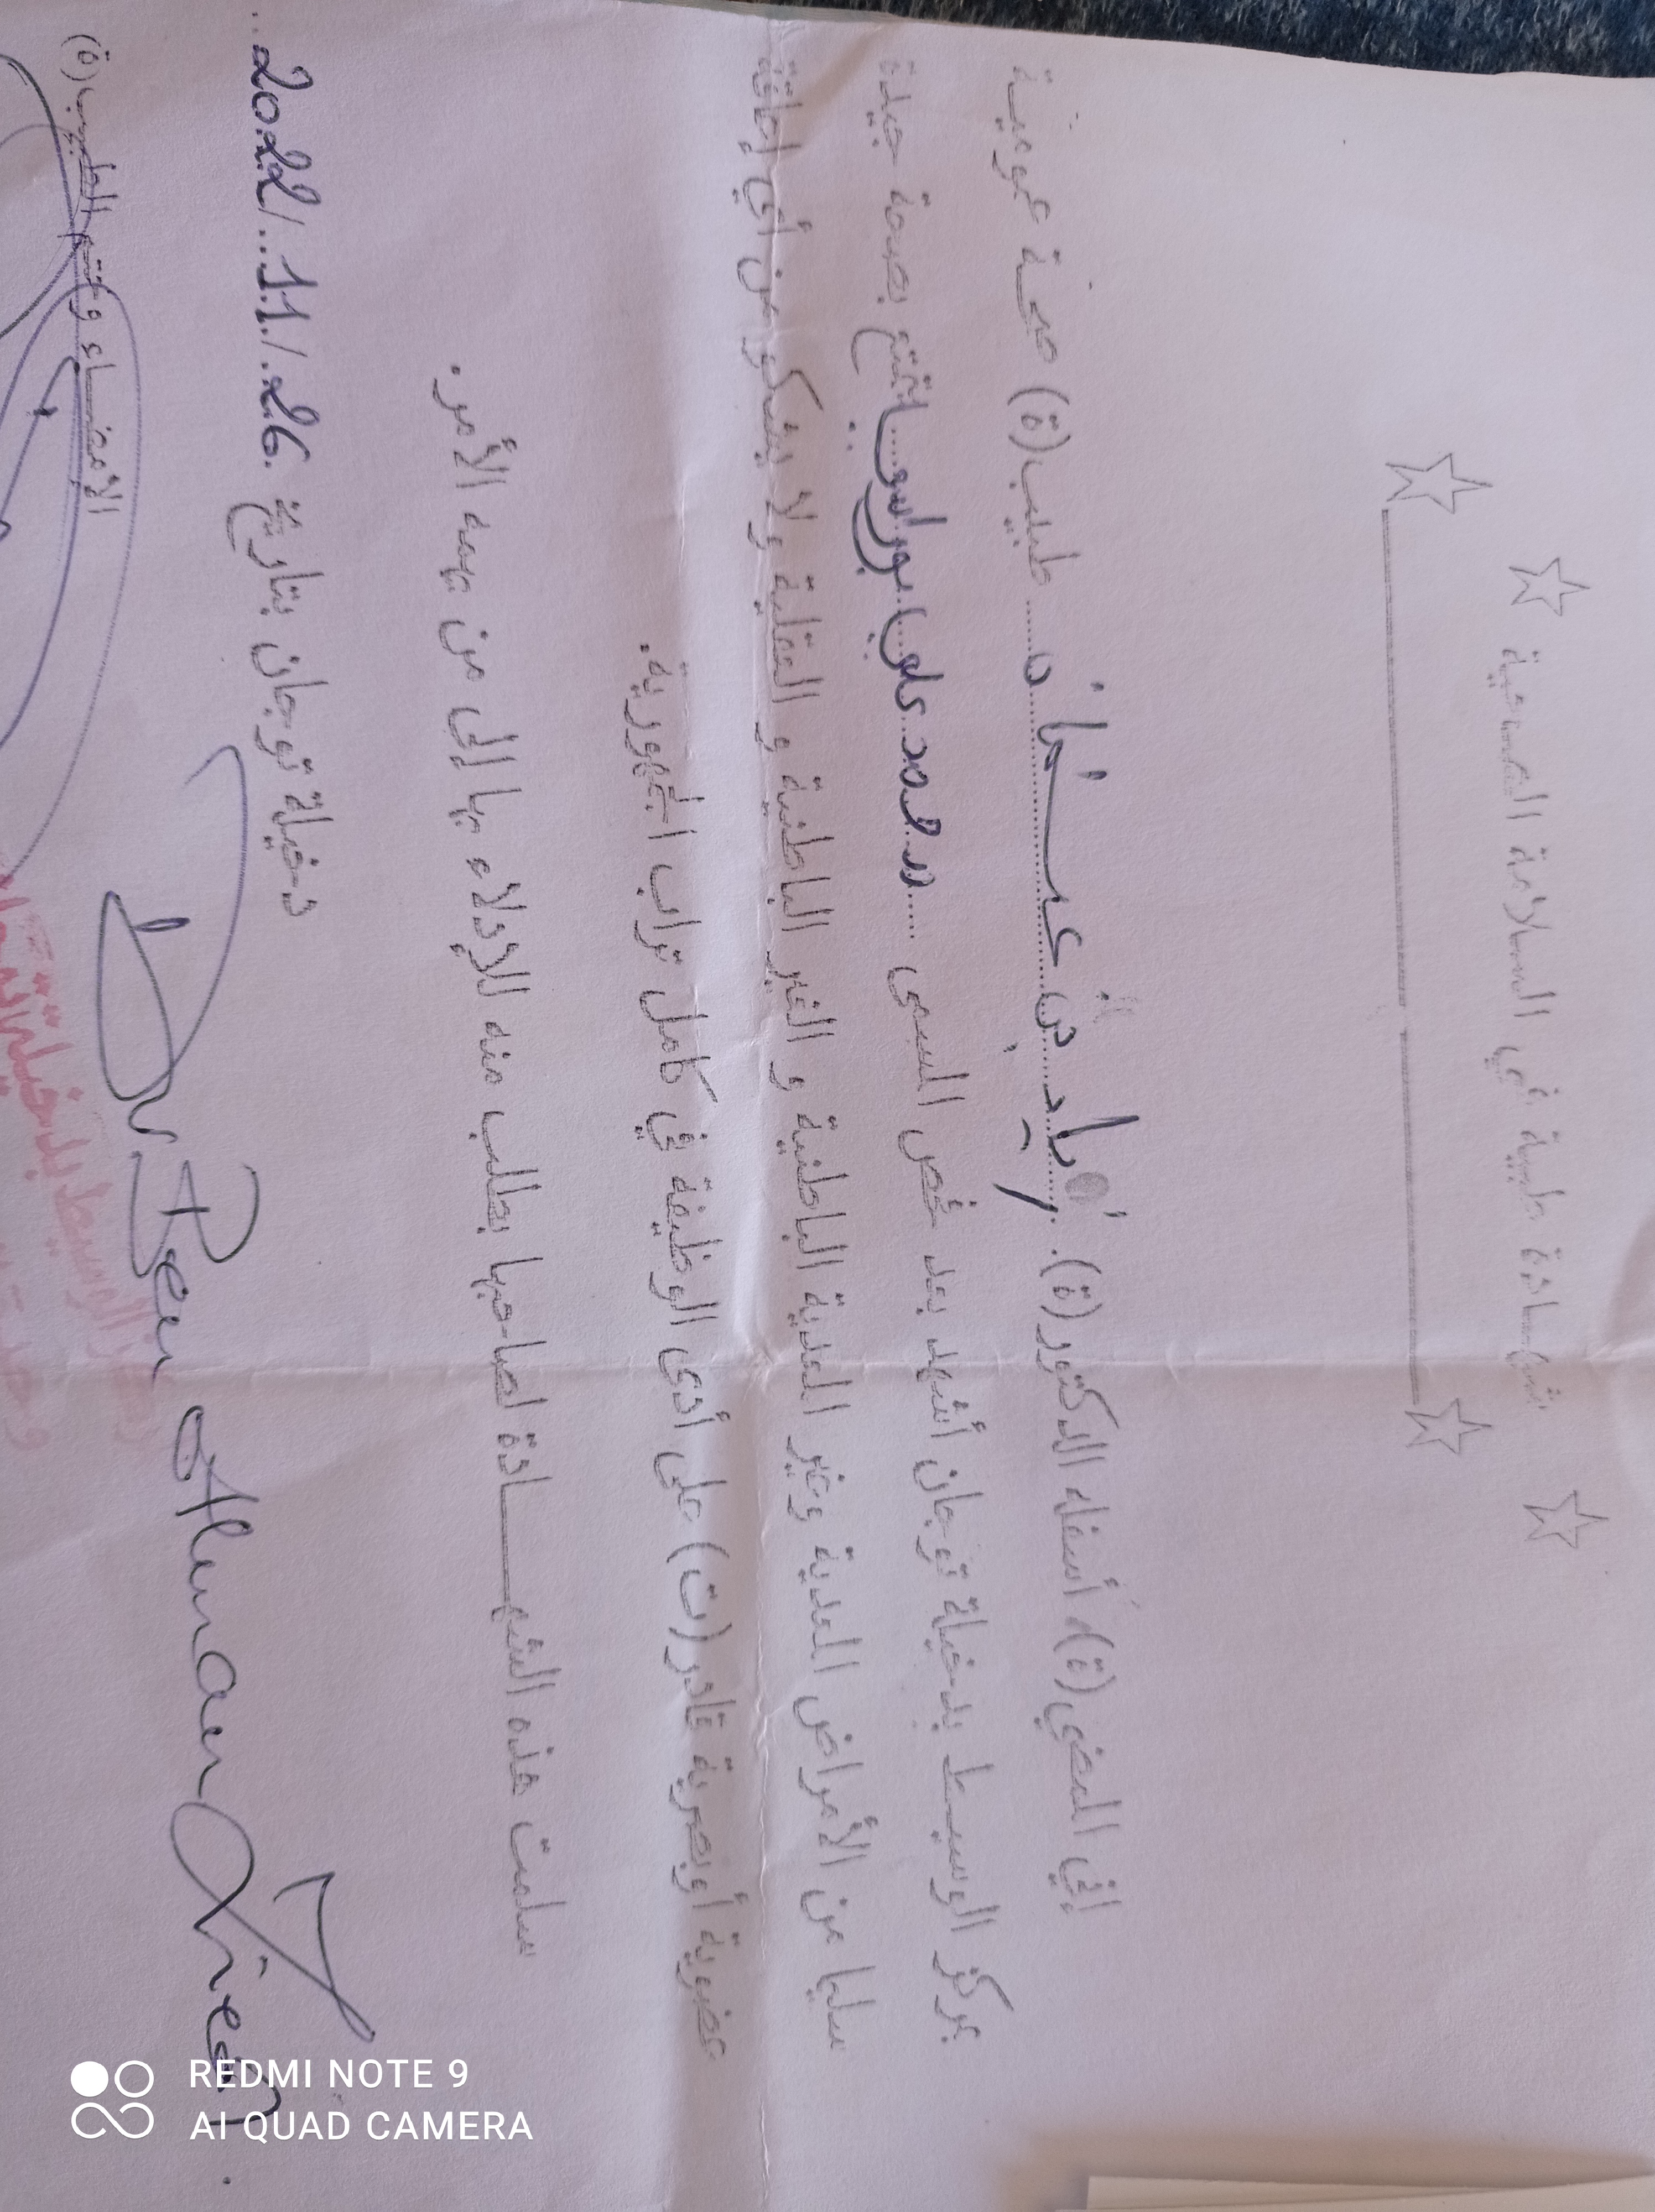 شهادة طبية في السلامة الصحية
إني الممضي(ة)، أسفله الدكتور(ة). إياد بن عثمان طبيب(ة) صحة عمومية
بمركز الوسيط بدخيلة توجان أشهد بعد فحص المسمى محمد علي بوراسو يتمتع بصحة جيدة
سليما من الأمراض المعدية وغير المعدية الباطنية و الغير الباطنية و العقلية ولا يشكو من أي إعاقة
عضوية أوبصرية قادر(ت) على أدى الوظيفة في كامل تراب الجمهورية.
سلمت هذه الشهادة لصاحبها بطلب منه للإدلاء بها إلى من يهمه الأمر.
دخيلة توجان بتاريخ 26/11/2022
الإمضاء وختم الطبيب(ة)
Dr Ben
REDMI NOTE 9
AI QUAD CAMERA